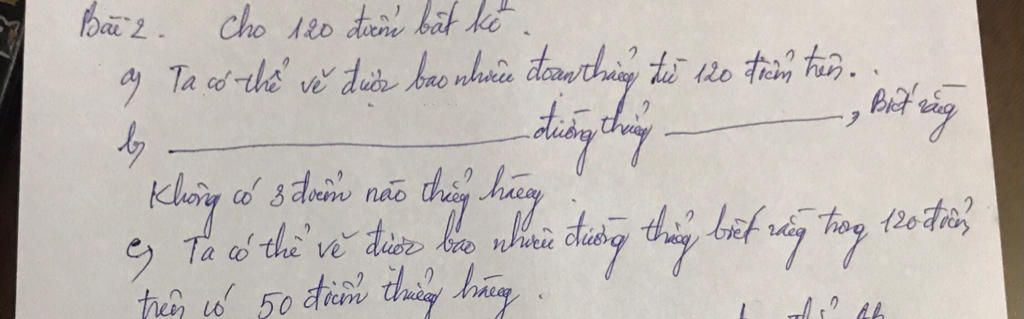 Bài 2. Cho 120 điểm bất kì.
a) Ta có thể vẽ được bao nhiêu đoạn thẳng từ 120 điểm trên.
b) ________ đường thẳng ________, Biết rằng
Không có 3 điểm nào thẳng hàng.
c) Ta có thể vẽ được bao nhiêu đường thẳng biết rằng trong 120 điểm
trên có 50 điểm thẳng hàng.